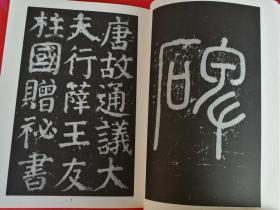 碑
唐故通議大
夫行薛王友
柱國贈祕書